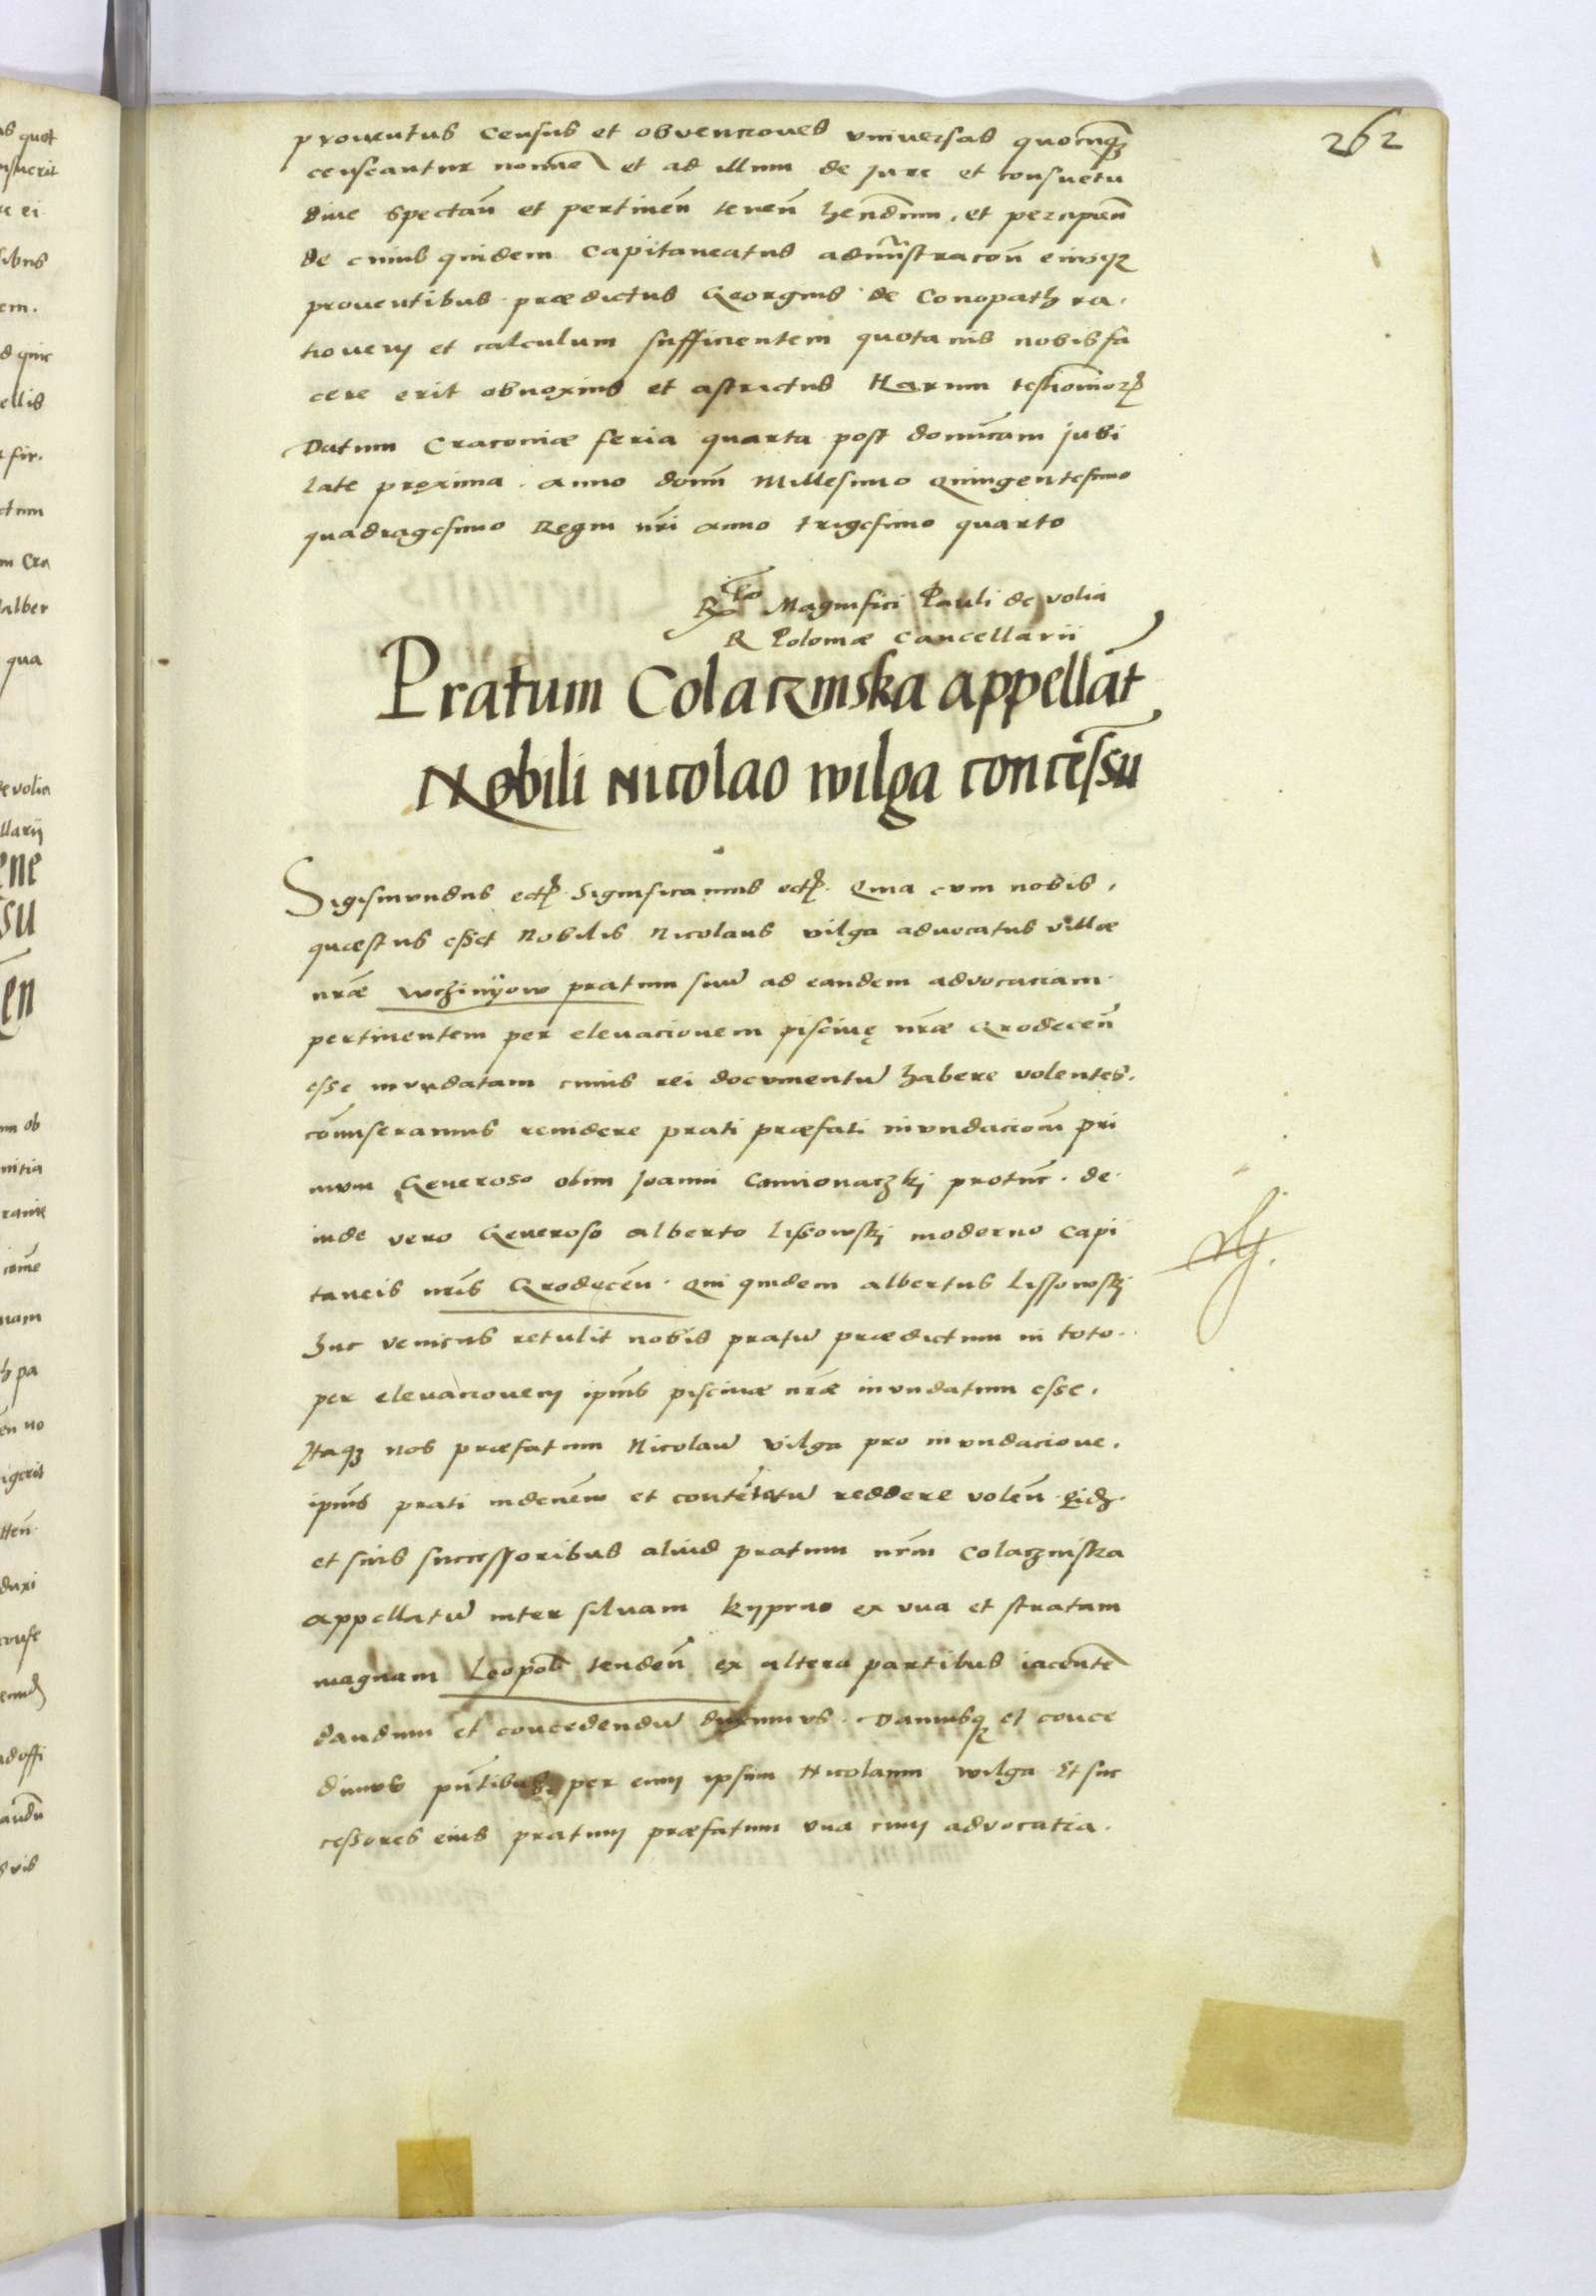 262
proventus census et obvenciones vniversas quocūqꝫ
censeantur nomīe et ad illum de jure et consuetu
dine spectan̄ et pertinen̄ tenen̄ hend̄um. et percipien̄
de cuius quidem Capitaneatus adm̄istracon̄ eiusqꝫ
proventibus prædictus Georgius de Conopath ra.
tionem et calculum sufficientem quotanis nobis fa
cere erit obnoxius et astrictus Harum testīonioꝝ
Datum Cracoviæ feria quarta post domīcam jubi
late proxima. anno domī Millesimo Quingentesimo
quadragesimo Regni nr̄i anno trigesimo quarto
R̄lo Magnifici Pauli de volia
R Poloniæ Cancellarii
Pratum Colaczinska appellāt
Nobili Nicolao wilga concēssu
Sigismvndus ectꝭ Significamus ectꝭ. Quia cvm nobis,
quæstus esset Nobilis Nicolaus vilga advocatus villæ
nr̄æ wchinÿow pratum suū ad eandem advocaciam
pertinentem per elevacionem piscinę nr̄æ Grodecen̄
esse invndatam cuius rei docvmentū habere volentes.
cōmiseramus revidere prati præfati invndacion̄ pri
mvm Generoso olim Joanni Camionaczkj protūc. de
inde vero Generoso alberto Lissowskj moderno Capi
taneis nr̄is Grodecēn. Qui quidem albertus Lissowskj
huc veniens retulit nobis pratū prædictum in toto.
per elevacionem ipīus piscinæ nr̄æ invndatum esse.
Itaqꝫ nos præfatum Nicolaū vilga pro invndacione.
ipīus prati indenēm et contētatū reddere volen̄ Eidꝫ.
et suis successoribus aliud pratum nr̄m Colaczinska
appellatū inter silvam kyprno ex vna et stratam
magnam Leopol̄ tenden̄ ex altera partibus iacentē
dandum et concedendū duximvs. Damusqꝫ et conce
dimvs pn̄tibus. per eum ipsum Nicolaum wilga Et suc
cessores eius pratum præfatum vna cum advocatia.